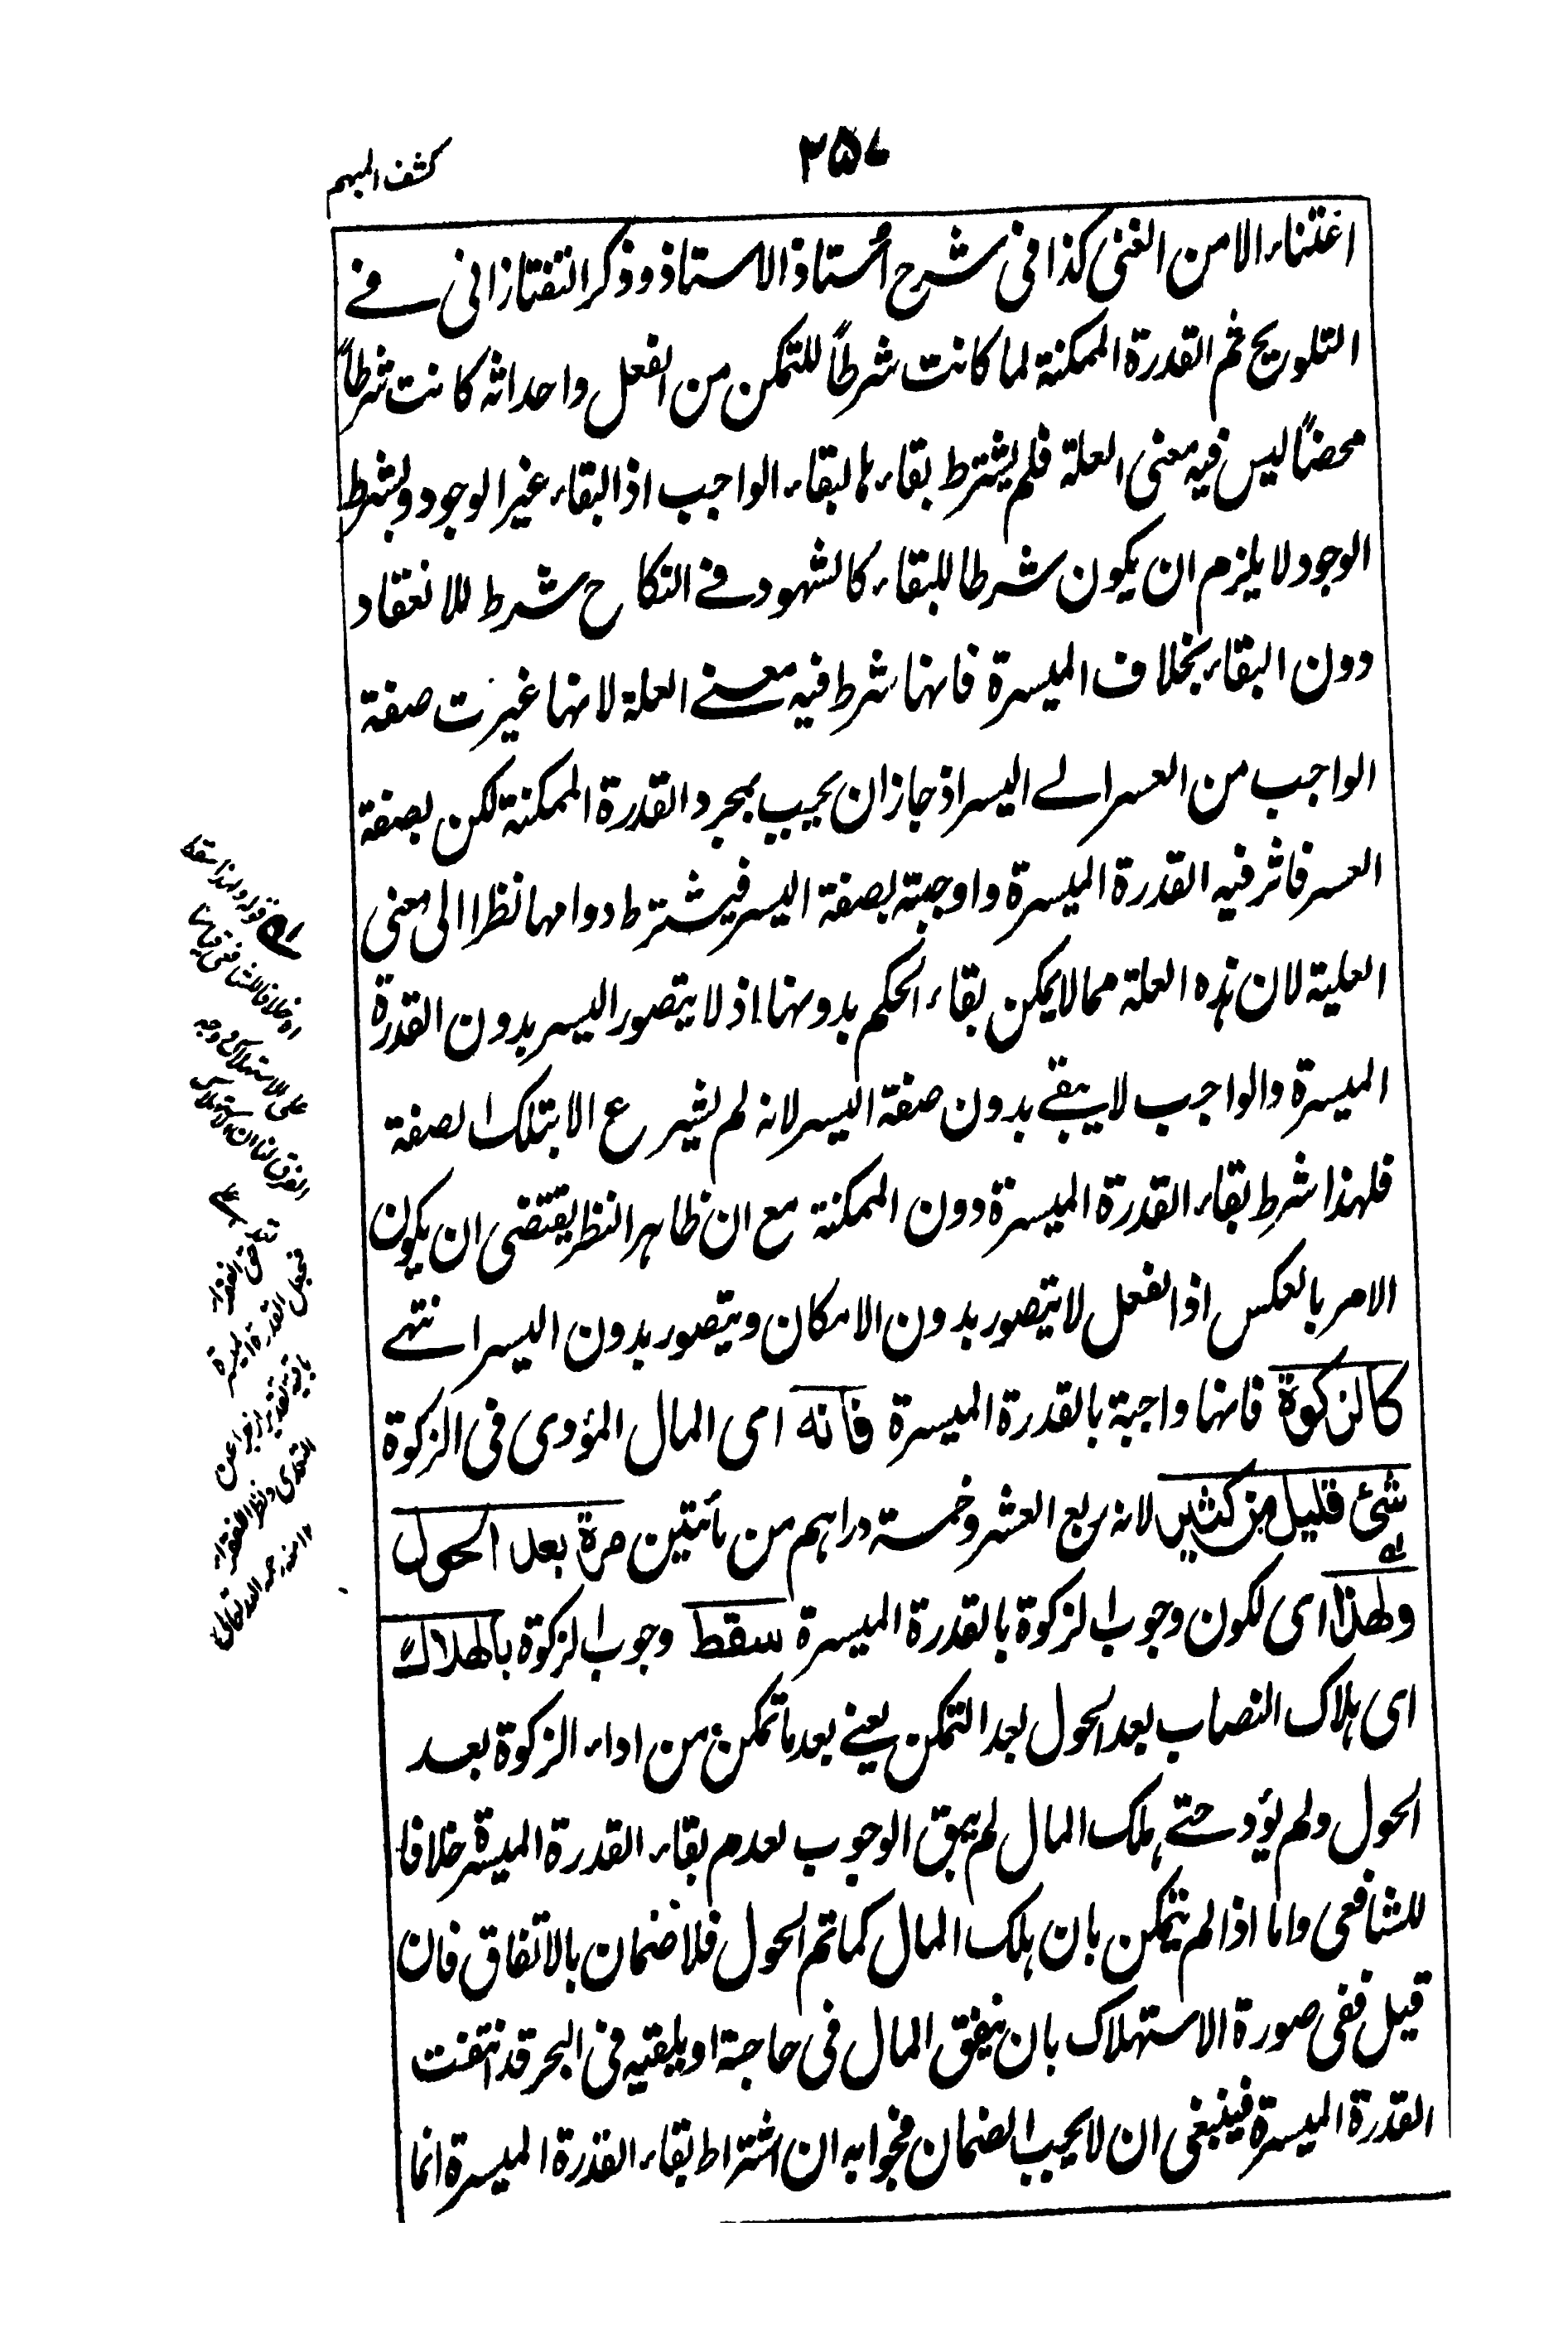 ٢٥٧
كشف المبهم
اغتناء الا من الغنى كذا فى شرح أستاذ الاستاذ وذكر التفتازانى فے
التلويح ثم القدرة الممكنة لما كانت شرطاً للتمكن من الفعل واحداثه كانت شرطاً
محضاً ليس فيه معنى العلة فلم يشترط بقاءها لبقاء الواجب اذ البقاء غير الوجود وبشرط
الوجود لا يلزم ان يكون شرطا للبقاء كالشهود فے النكاح شرط للانعقاد
دون البقاء بخلاف الميسرة فانها شرط فيه معنے العلة لانها غيرت صفة
الواجب من العسر الے اليسر اذ جاز ان يجيب بمجرد القدرة الممكنة لكن بصفة
العسر فاثر فيه القدرة الميسرة واوجبته بصفة اليسر فيشترط دوامها نظرا الى معنى
العلية لان هذه العلة مما لا يمكن بقاء الحكم بدونها اذ لا يتصور اليسر بدون القدرة
الميسرة والواجب لا يبقے بدون صفة اليسر لانه لم يشرع الا بتلك الصفة
فلهذا شرط بقاء القدرة الميسرة دون الممكنة مع ان ظاهر النظر يقتضى ان يكون
الامر بالعكس اذ الفعل لا يتصور بدون الامكان ويتصور بدون اليسر انتهے
كالزكوة فانها واجبة بالقدرة الميسرة فانه اى المال المؤدى فى الزكوة
شئ قليل من كثير لانه ربع العشر وخمسة دراهم من مأتين مرة بعد الحول
ولهذا اى لكون وجوب الزكوة بالقدرة الميسرة سقط وجوب الزكوة بالهلاك
اى هلاك النصاب بعد الحول بعد التمكن يعنے بعد ما تمكن من اداء الزكوة بعد
الحول ولم يؤد حتے هلك المال لم يبق الوجوب لعدم بقاء القدرة الميسرة خلافا
للشافعى واما اذا لم يتمكن بان هلك المال كما تم الحول فلا ضمان بالاتفاق فان
قيل ففى صورة الاستهلاك بان ينفق المال فى حاجته او يلقيه فى البحر قد انتفت
القدرة الميسرة فينبغى ان لا يجب الضمان فجوابه ان اشتراط بقاء القدرة الميسرة انما
قوله ولهذا سقط
على الاستهلاك وجه
تعلق حق الفقراء
فجعل القدرة الميسرة
باقية تقديرا زجرا عن
التعدى ونظرا للفقراء
١٢ منه رحمه الله تعالى